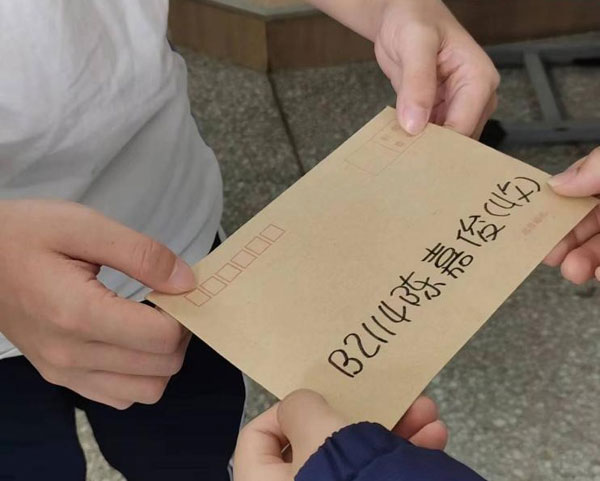 B2114陈嘉俊(收)